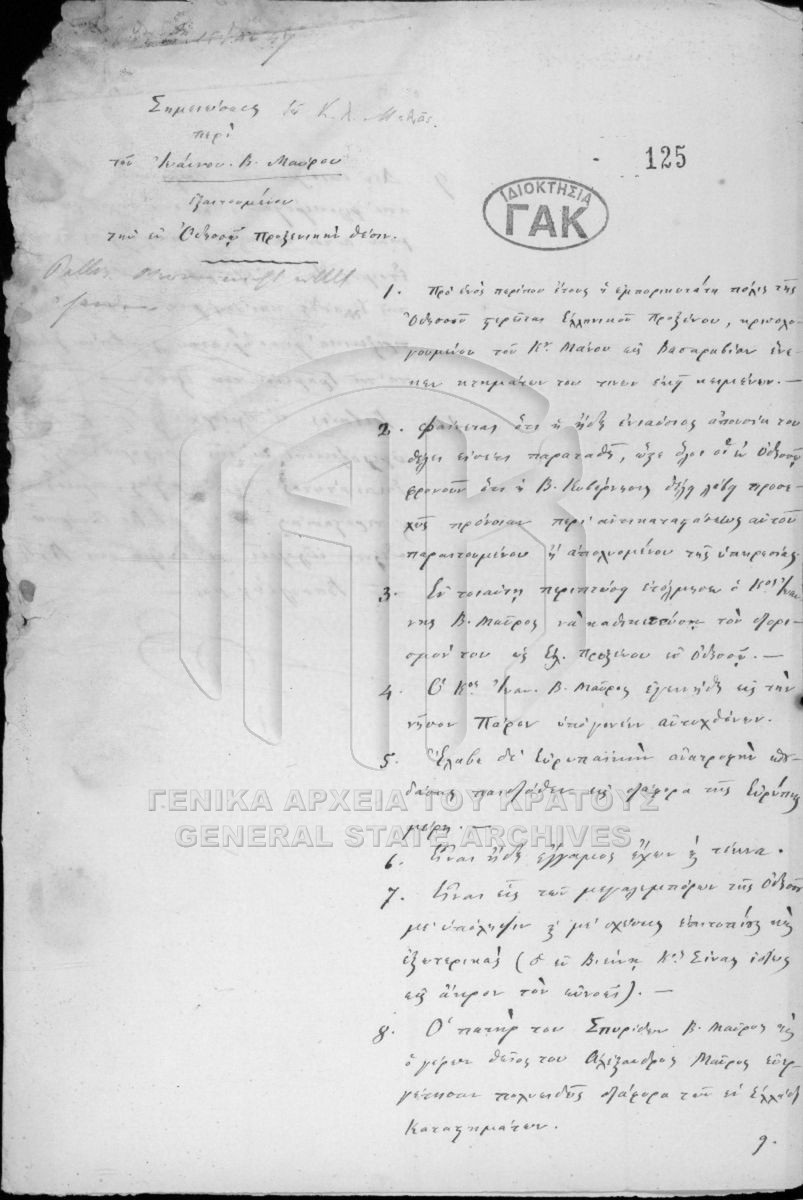 Σημειώσεις τοῦ Κ. Λ. Μελᾶ.
περὶ
τοῦ Ἰωάννου. Β. Μαύρου
ἐξαιτουμένου
τὴν ἐν Ὀδησσῷ Προξενικὴν θέσιν.
125
ΙΔΙΟΚΤΗΣΙΑ
ΓΑΚ
1. Πρὸ ἑνὸς περίπου ἔτους ἡ ἐμπορικωτάτη πόλις τῆς
Ὀδησσοῦ στερεῖται Ἑλληνικοῦ Προξένου,
τοῦ Κου Μάνου εἰς Βασαραβίαν ἕνε-
κεν κτημάτων του τινων ἐκεῖ κειμένων. —
2. Φαίνεται ὅτι ἡ ἤδη ἐνιαύσιος ἀπουσία του
θέλει εἰσέτι παραταθῆ, ὥστε ὅλοι οἱ ἐν Ὀδησσῷ
φρονοῦν ὅτι ἡ Β. Κυβέρνησις θέλει λάβῃ προσε-
χῶς πρόνοιαν περὶ ἀντικαταστάσεως αὐτοῦ
παραιτουμένου ἢ ἀπολυομένου τῆς ὑπηρεσίας.
3. Ἐν τοιαύτῃ περιπτώσει ἐτόλμησεν ὁ Κος Ἰωάν-
νης Β. Μαῦρος νὰ καθικετεύσῃ τὸν διορι-
σμόν του ὡς Ἑλ. Προξένου ἐν Ὀδησσῷ. —
4. Ὁ Κος Ἰωαν. Β. Μαῦρος ἐγεννήθη εἰς τὴν
νῆσον Πάρον ὑπὸ γονέων αὐτοχθόνων.
5. Ἔλαβε δὲ Εὐρωπαϊκὴν ἀνατροφὴν
παιδιόθεν εἰς διάφορα τῆς Εὐρώπης
μέρη. —
6. Εἶναι ἤδη ἔγγαμος ἔχων καὶ τέκνα.
7. Εἶναι εἷς τῶν μεγαλεμπόρων τῆς Ὀδησσοῦ
μὲ ὑπόληψιν καὶ μὲ σχέσεις ἐπιτοπίους καὶ
ἐξωτερικὰς (ὁ ἐν Βιέννῃ Κος Σίνας ἰδίως
εἰς ἄκρον τὸν εὐνοεῖ). —
8. Ὁ πατὴρ του Σπυρίδων Β. Μαῦρος καὶ
ὁ γέρων θεῖος του Ἀλέξανδρος Μαῦρος εὐηρ-
γέτησαν πολυειδῶς διάφορα τῶν ἐν Ἑλλάδι
Καταστημάτων.
9.
ΓΕΝΙΚΑ ΑΡΧΕΙΑ ΤΟΥ ΚΡΑΤΟΥΣ
GENERAL STATE ARCHIVES